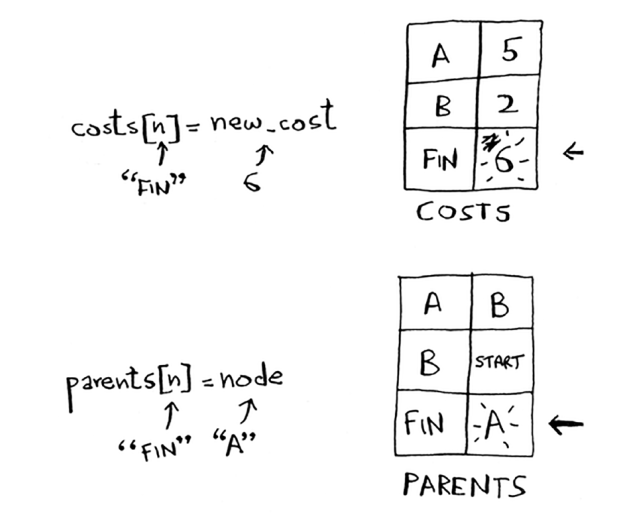 A 5
B 2
costs[n] = new_cost
FIN 6
"FIN" 6
COSTS
A B
B START
parents[n] = node
FIN A
"FIN" "A"
PARENTS